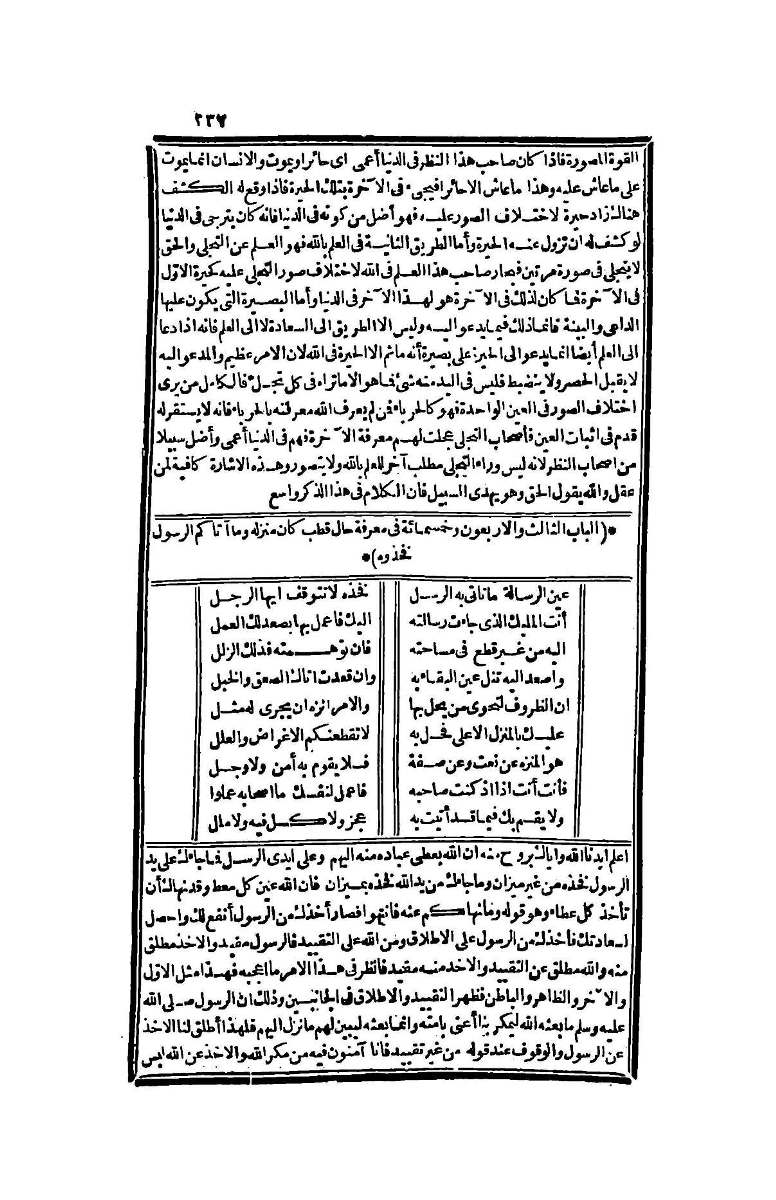 ٢٣٧
القوة المصورة فاذا كان صاحب هذا النظر فى الدنيا أعمى اى حائرا ويموت والانسان انما يموت
على ما عاش عليه وهذا ما عاش الا حائرا فيجىء فى الآخرة بتلك الحيرة فاذا وقع له الكشف
هناك زاد حيرة لاختلاف الصور عليه فهو أضل من كونه فى الدنيا فانه كان يترجى فى الدنيا
لو كشف له ان تزول عنه الحيرة وأما الطريق الثانية فى العلم بالله فهو العلم عن التجلى والحق
لا يتجلى فى صورة مرتين فيحار صاحب هذا العلم فى الله لاختلاف صور التجلى عليه كحيرة الاول
فى الآخرة فما كان لذلك فى الآخرة هو لهذا الآخر فى الدنيا وأما البصيرة التى يكون عليها
الداعى والبينة فانما ذلك فيما يدعو اليه وليس الا الطريق الى السعادة لا الى العلم فانه اذا دعا
الى العلم أيضا انما يدعو الى الحيرة على بصيرة أنه ما ثم الا الحيرة فى الله لان الامر عظيم والمدعو اليه
لا يقبل الحصر ولا ينضبط فليس فى اليد منه شئ فما هو الا ما تراه فى كل تجل فالكامل من يرى
اختلاف الصور فى العين الواحدة فهو كالحرباء فمن لم يعرف الله معرفته بالحرباء فانه لا يستقر له
قدم فى اثبات العين فأصحاب التجلى عجلت لهم معرفة الآخرة فهم فى الدنيا أعمى وأضل سبيلا
من اصحاب النظر لانه ليس وراء التجلى مطلب آخر للعلم بالله ولا يتصور وهذه الاشارة كافية لمن
عقل والله يقول الحق وهو يهدى السبيل فان الكلام فى هذا الذكر واسع
*(الباب الثالث والاربعون وخمسمائة فى معرفة حال قطب كان منزله وما آتاكم الرسول
فخذوه)*
عين الرسالة ما تأتى به الرسل فخذه لا تتوقف ايها الرجل
أنت المليك الذى جاءت رسالته اليك فاعمل بها يصعد لك العمل
اليه من غير قطع فى مساحته فان توهمته فذلك الزلل
واصعد اليه تنل عين البقاء به وان قعدت اتاك الصعق والخبل
ان الظروف لتحوى من يحل بها والامر انزه ان يجرى له مثل
عليك بالمنزل الاعلى فحل به لا تقطعنكم الاغراض والعلل
هو المنزه عن نعت وعن صفة فلا يقوم به أمن ولا وجل
فأنت أنت اذا اذ كنت صاحبه فاعمل لنفسك ما اصحابه عملوا
ولا يقم بك فيما قد أتيت به عجز ولا كسل فيه ولا ملل
اعلم ايدنا الله واياك بروح منه ان الله يعطى عباده منه اليهم وعلى ايدى الرسل فما جاءك على يد
الرسول فخذه من غير ميزان وما جاءك من يد الله فخذه بميزان فان الله عين كل معط وقد نهاك أن
تأخذ كل عطاء وهو قوله وما نهاكم عنه فانتهوا فصار أخذك من الرسول أنفع لك واحصل
لسعادتك فأخذك من الرسول على الاطلاق ومن الله على التقييد فالرسول مقيد والاخذ مطلق
منه والله مطلق عن التقييد والاخذ منه مقيد فانظر فى هذا الامر ما اعجبه فهذا مثل الاول
والآخر والظاهر والباطن فظهر التقييد والاطلاق فى الجانبين وذلك ان الرسول صلى الله
عليه وسلم ما بعثه الله ليمكر بنا أعنى بامته وانما بعثه ليبين لهم ما نزل اليهم فلهذا أطلق لنا الاخذ
عن الرسول والوقوف عند قوله من غير تقييد فانا آمنون فيه من مكر الله والاخذ عن الله ليس